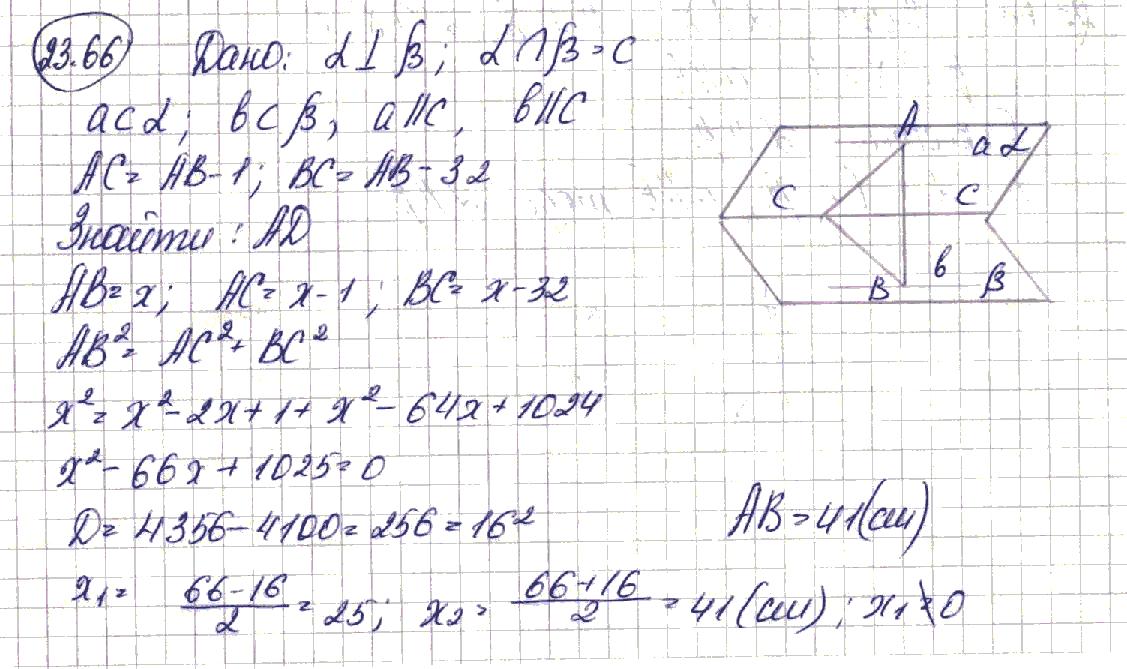 23.66 Дано: α⊥β; α∩β=c
a⊂α; b⊂β, a||c, b||c
AC=AB-1; BC=AB-32
Знайти: AD
AB=x; AC=x-1; BC=x-32
AB²=AC²+BC²
x²=x²-2x+1+x²-64x+1024
x²-66x+1025=0
D=4356-4100=256=16²
x₁=(66-16)/2=25; x₂=(66+16)/2=41(см); x₁≠0
AB=41(см)
A
a α
C c
B b β